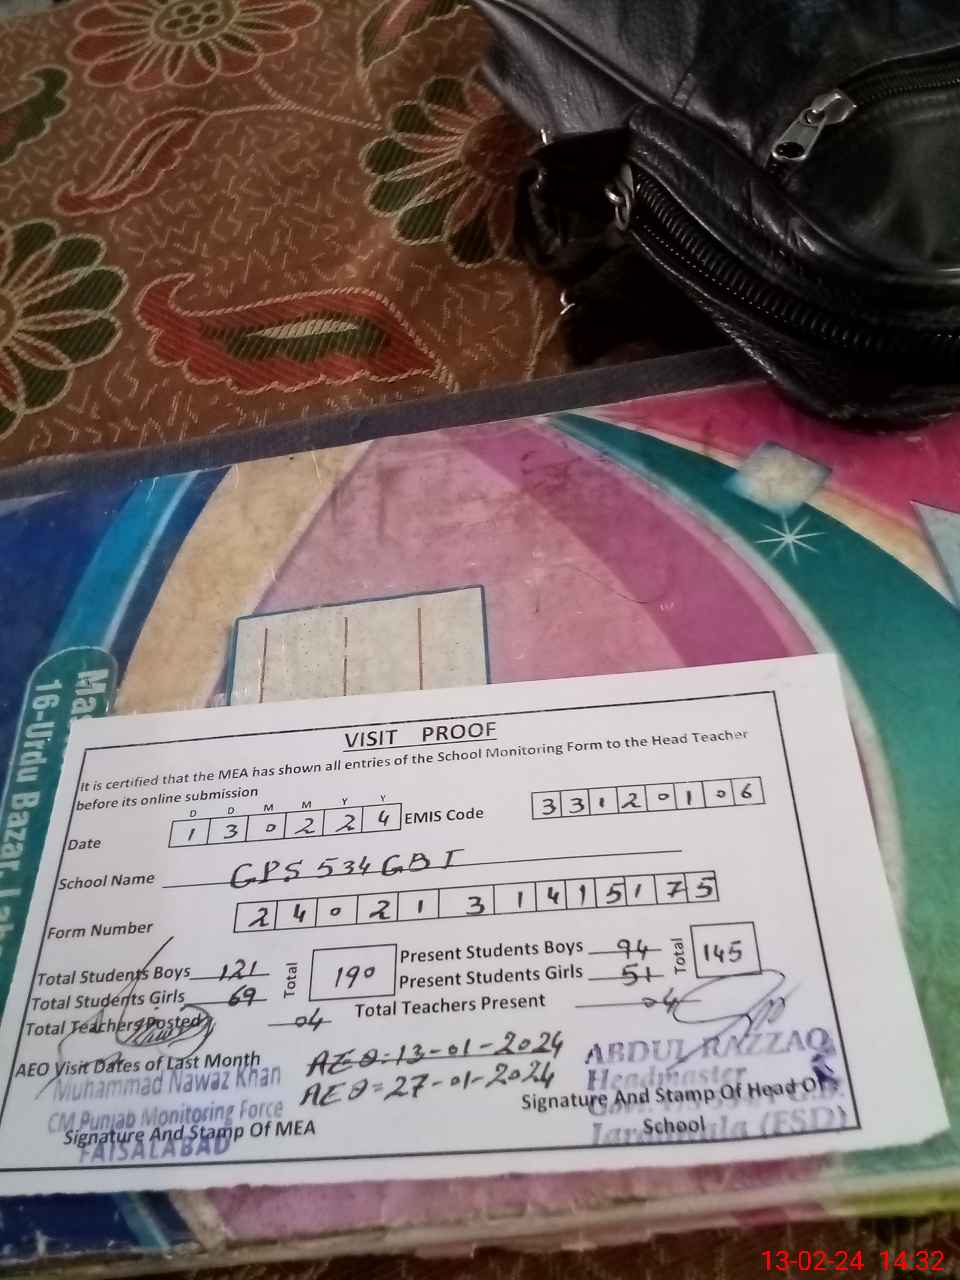 Mas
16-Urdu Bazar, Lah
VISIT PROOF
It is certified that the MEA has shown all entries of the School Monitoring Form to the Head Teacher
before its online submission
D D M M Y Y
Date 1 3 0 2 2 4 EMIS Code 3 3 1 2 0 1 0 6
School Name GPS 534 GB I
Form Number 2 4 0 2 1 3 1 4 1 5 1 7 5
Total Students Boys 121 Total 190 Present Students Boys 94 Total 145
Total Students Girls 69 Present Students Girls 51
Total Teachers Posted 04 Total Teachers Present 04
AEO Visit Dates of Last Month AEO=13-01-2024
AEO=27-01-2024
Muhammad Nawaz Khan
CM Punjab Monitoring Force
FAISALABAD
Signature And Stamp Of MEA
ABDUL RAZZAQ
Headmaster
Jaranwala (FSD)
Signature And Stamp Of Head Of
School
13-02-24 14:32